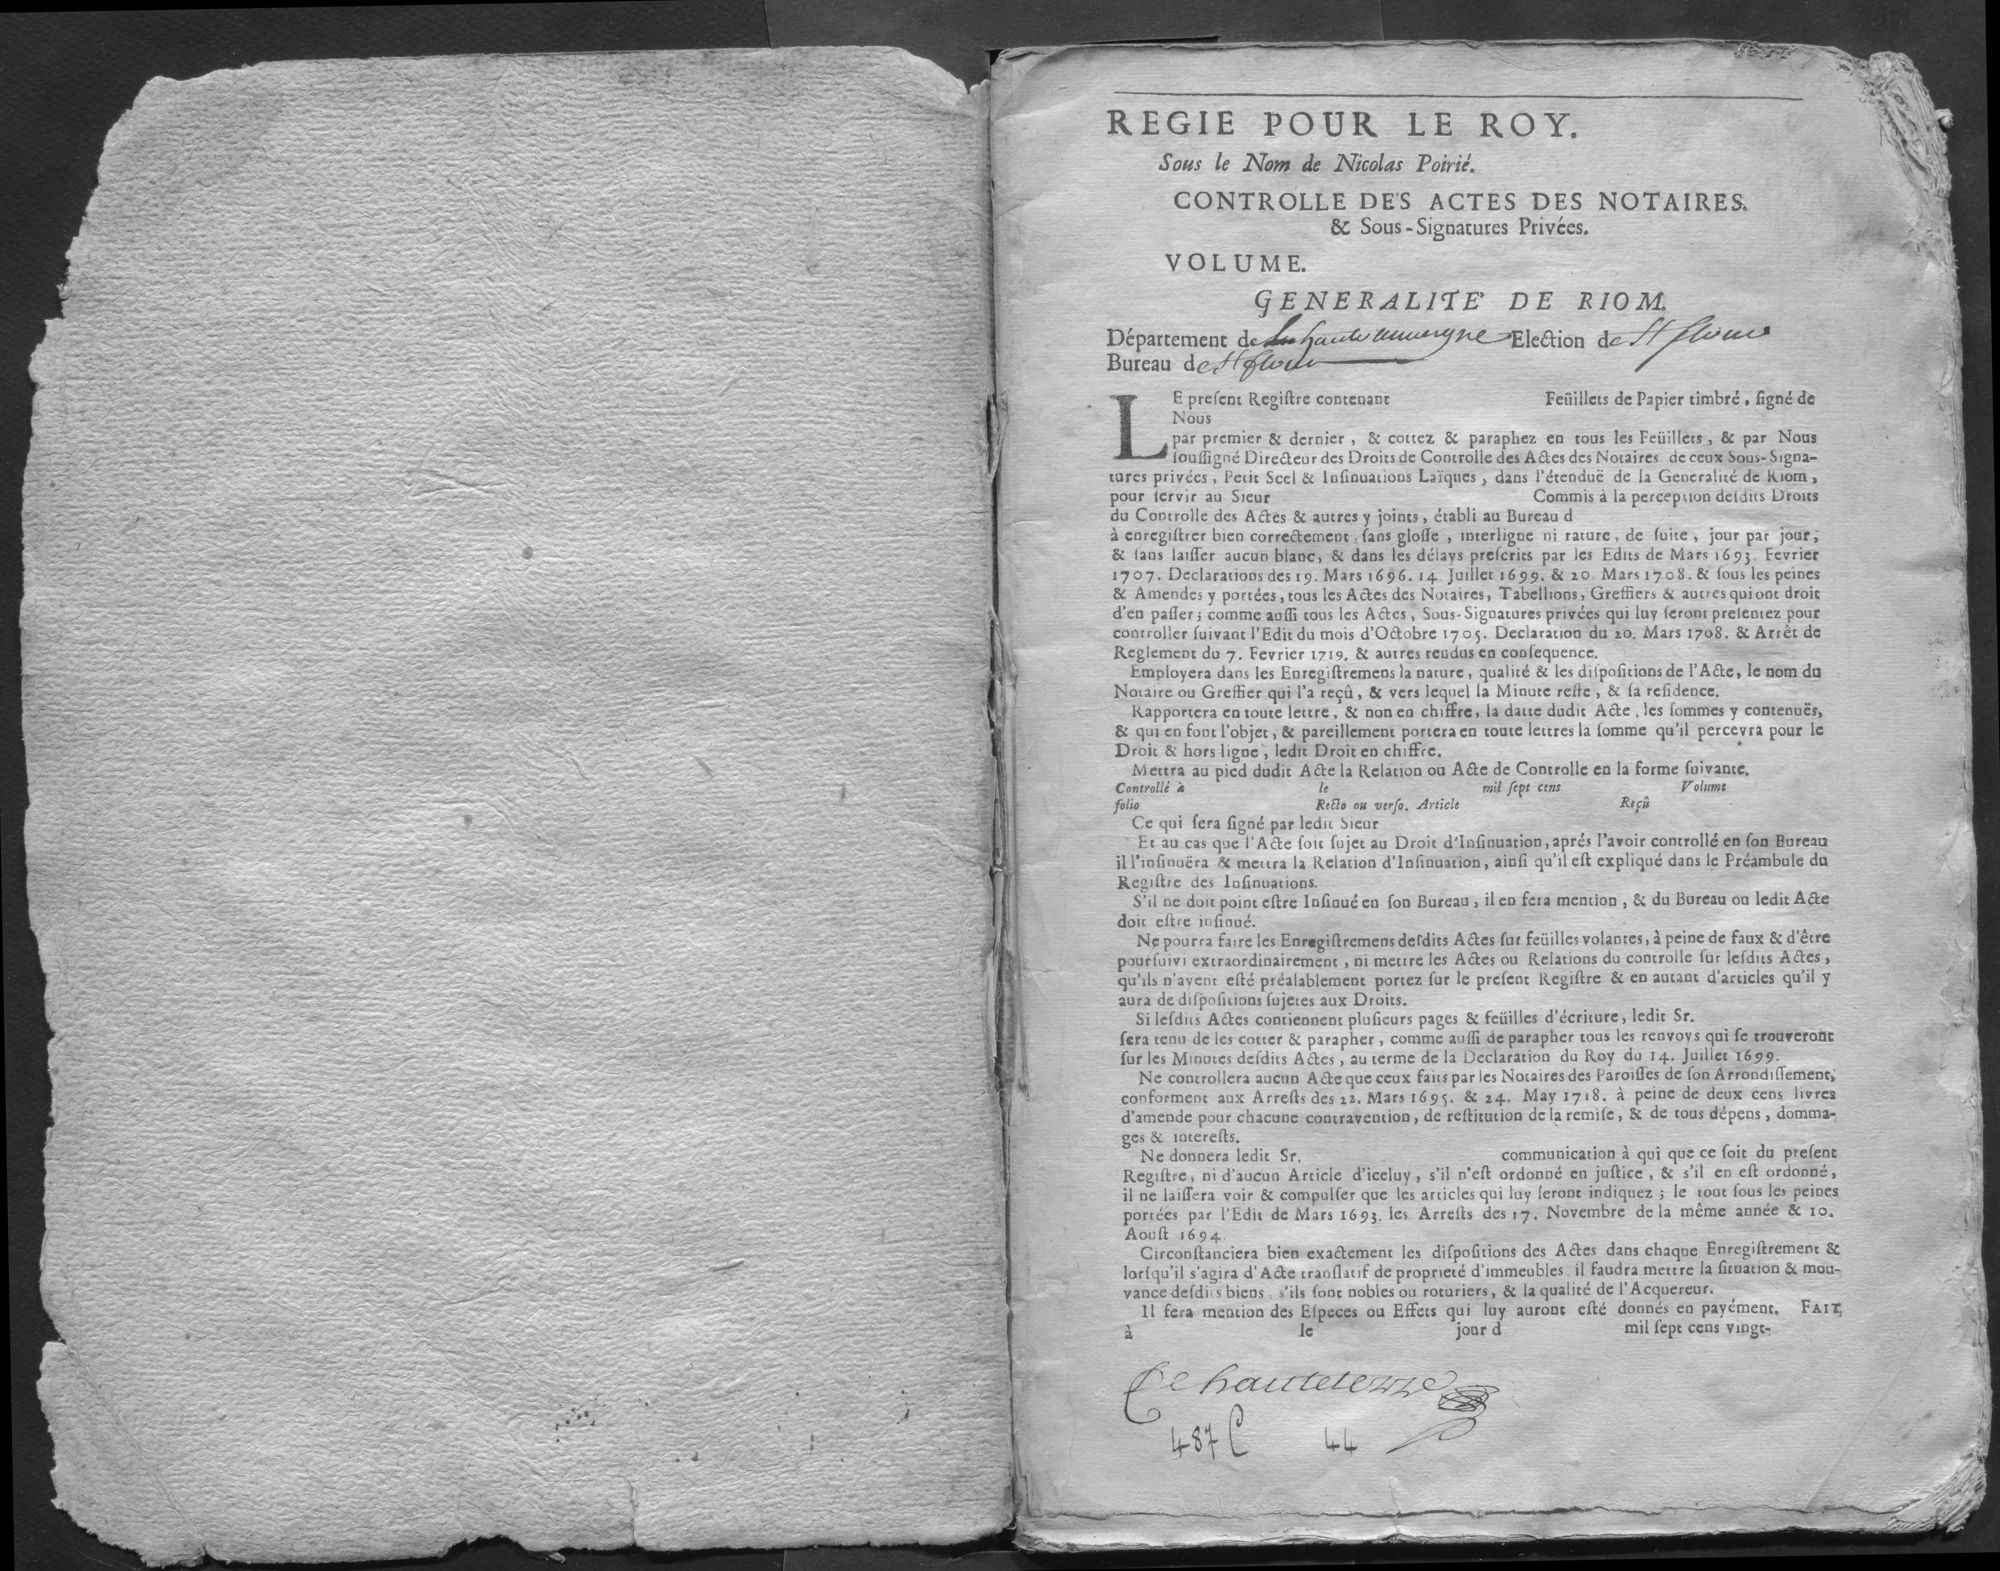 REGIE POUR LE ROY.
Sous le Nom de Nicolas Poirié.
CONTROLLE DES ACTES DES NOTAIRES.
& Sous-Signatures Privées.
VOLUME.
GENERALITE' DE RIOM.
Département de la haute auvergne Election de St flour
Bureau de St flour
LE preſent Regiſtre contenant Feüillets de Papier timbré, ſigné de
Nous
par premier & dernier, & cottez & paraphez en tous les Feüillets, & par Nous
ſouſſigné Directeur des Droits de Controlle des Actes des Notaires, de ceux Sous-Signa-
tures privées, Petit Scel & Inſinuations Laïques, dans l'étenduë de la Generalité de Riom,
pour ſervir au Sieur Commis à la perception deſdits Droits
du Controlle des Actes & autres y joints, établi au Bureau d
à enregiſtrer bien correctement, ſans gloſſe, interligne ni rature, de ſuite, jour par jour,
& ſans laiſſer aucun blanc, & dans les délays preſcrits par les Edits de Mars 1693. Fevrier
1707. Declarations des 19. Mars 1696. 14. Juillet 1699. & 20. Mars 1708. & ſous les peines
& Amendes y portées, tous les Actes des Notaires, Tabellions, Greffiers & autres qui ont droit
d'en paſſer; comme auſſi tous les Actes, Sous-Signatures privées qui luy ſeront preſentez pour
controller ſuivant l'Edit du mois d'Octobre 1705. Declaration du 20. Mars 1708. & Arrêt de
Reglement du 7. Fevrier 1719. & autres rendus en conſequence.
Employera dans les Enregiſtremens la nature, qualité & les diſpoſitions de l'Acte, le nom du
Notaire ou Greffier qui l'a reçû, & vers lequel la Minute reſte, & ſa reſidence.
Rapportera en toute lettre, & non en chiffre, la datte dudit Acte, les ſommes y contenuës,
& qui en font l'objet, & pareillement portera en toute lettres la ſomme qu'il percevra pour le
Droit & hors ligne, ledit Droit en chiffre.
Mettra au pied dudit Acte la Relation ou Acte de Controlle en la forme ſuivante.
Controllé à le mil ſept cens Volume
folio Recto ou verſo. Article Reçû
Ce qui ſera ſigné par ledit Sieur
Et au cas que l'Acte ſoit ſujet au Droit d'Inſinuation, aprés l'avoir controllé en ſon Bureau
il l'inſinuëra & mettra la Relation d'Inſinuation, ainſi qu'il eſt expliqué dans le Préambule du
Regiſtre des Inſinuations.
S'il ne doit point eſtre Inſinué en ſon Bureau, il en fera mention, & du Bureau ou ledit Acte
doit eſtre inſinué.
Ne pourra faire les Enregiſtremens deſdits Actes ſur feüilles volantes, à peine de faux & d'être
pourſuivi extraordinairement, ni mettre les Actes ou Relations du controlle ſur leſdits Actes,
qu'ils n'ayent eſté préalablement portez ſur le preſent Regiſtre & en autant d'articles qu'il y
aura de diſpoſitions ſujetes aux Droits.
Si leſdits Actes contiennent pluſieurs pages & feüilles d'écriture, ledit Sr.
ſera tenu de les cotter & parapher, comme auſſi de parapher tous les renvoys qui ſe trouveront
ſur les Minutes deſdits Actes, au terme de la Declaration du Roy du 14. Juillet 1699.
Ne controllera aucun Acte que ceux faits par les Notaires des Paroiſſes de ſon Arrondiſſement,
conforment aux Arreſts des 22. Mars 1695. & 24. May 1718. à peine de deux cens livres
d'amende pour chacune contravention, de reſtitution de la remiſe, & de tous dépens, domma-
ges & intereſts.
Ne donnera ledit Sr. communication à qui que ce ſoit du preſent
Regiſtre, ni d'aucun Article d'iceluy, s'il n'eſt ordonné en juſtice, & s'il en eſt ordonné,
il ne laiſſera voir & compulſer que les articles qui luy ſeront indiquez; le tout ſous les peines
portées par l'Edit de Mars 1693. les Arreſts des 17. Novembre de la même année & 10.
Aouſt 1694.
Circonſtanciera bien exactement les diſpoſitions des Actes dans chaque Enregiſtrement &
lorſqu'il s'agira d'Acte tranſlatif de proprieté d'immeubles, il faudra mettre la ſituation & mou-
vance deſdits biens, s'ils ſont nobles ou roturiers, & la qualité de l'Acquereur.
Il ſera mention des Eſpeces ou Effets qui luy auront eſté donnés en payément. FAIT,
à le jour d mil ſept cens vingt-
487 C 44